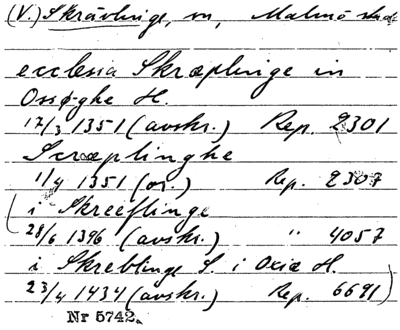 (V.) Skrävlinge, sn, Malmö stad
ecclesia Skræplinge in
Ossøghe H.
17/3 1351 (avskr.) Rep. 2301
Scræplinghe
11/4 1351 (or.) Rep. 2307
(i Skreeflinge
28/6 1396 (avskr.) " 4057
i Skreblinge S. i Oxiæ H.
23/4 1434 (avskr.) Rep. 6691)
Nr 5742.